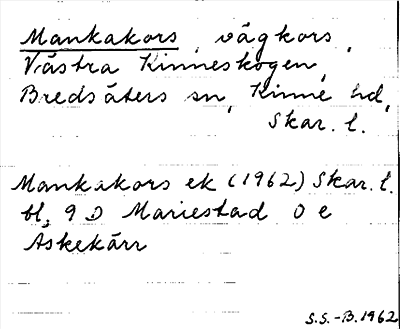 Mankakors, vägkors,
Västra Kinneskogen,
Bredsäters sn, Kinne hd,
Skar. l.
Mankakors ek (1962) Skar. l.
bl, 9 D Mariestad O e
Askekärr
S.S.-B. 1962